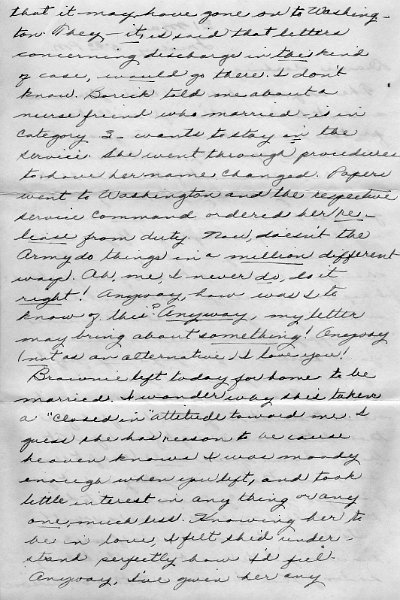 that it may have gone on to Washing-
ton. They - it is said that letters
concerning discharge in the kind
of case, would go there. I don't
know. Borick told me about a
nurse friend who married - is in
Category 3 - wants to stay in the
service. She went through procedures
to have her name changed. Papers
went to Washington and the respective
service command ordered her re-
lease from duty. Now, doesn't the
Army do things in a million different
ways. Ah, me, I never do, do it
right! Anyway, how was I to
know of this? Anyway, my letter
may bring about something! Anyway
(not as an alternative) I love you!
Brownie left today for home to be
married. I wonder why she's taken
a "closed in" attitude toward me. I
guess she has reason to be cause
heaven knows I was moody
enough when you left, and took
little interest in any thing or any
one, much less. Knowing her to
be in love, I felt she'd under-
stand perfectly how I'd feel.
Anyway, I've given her any